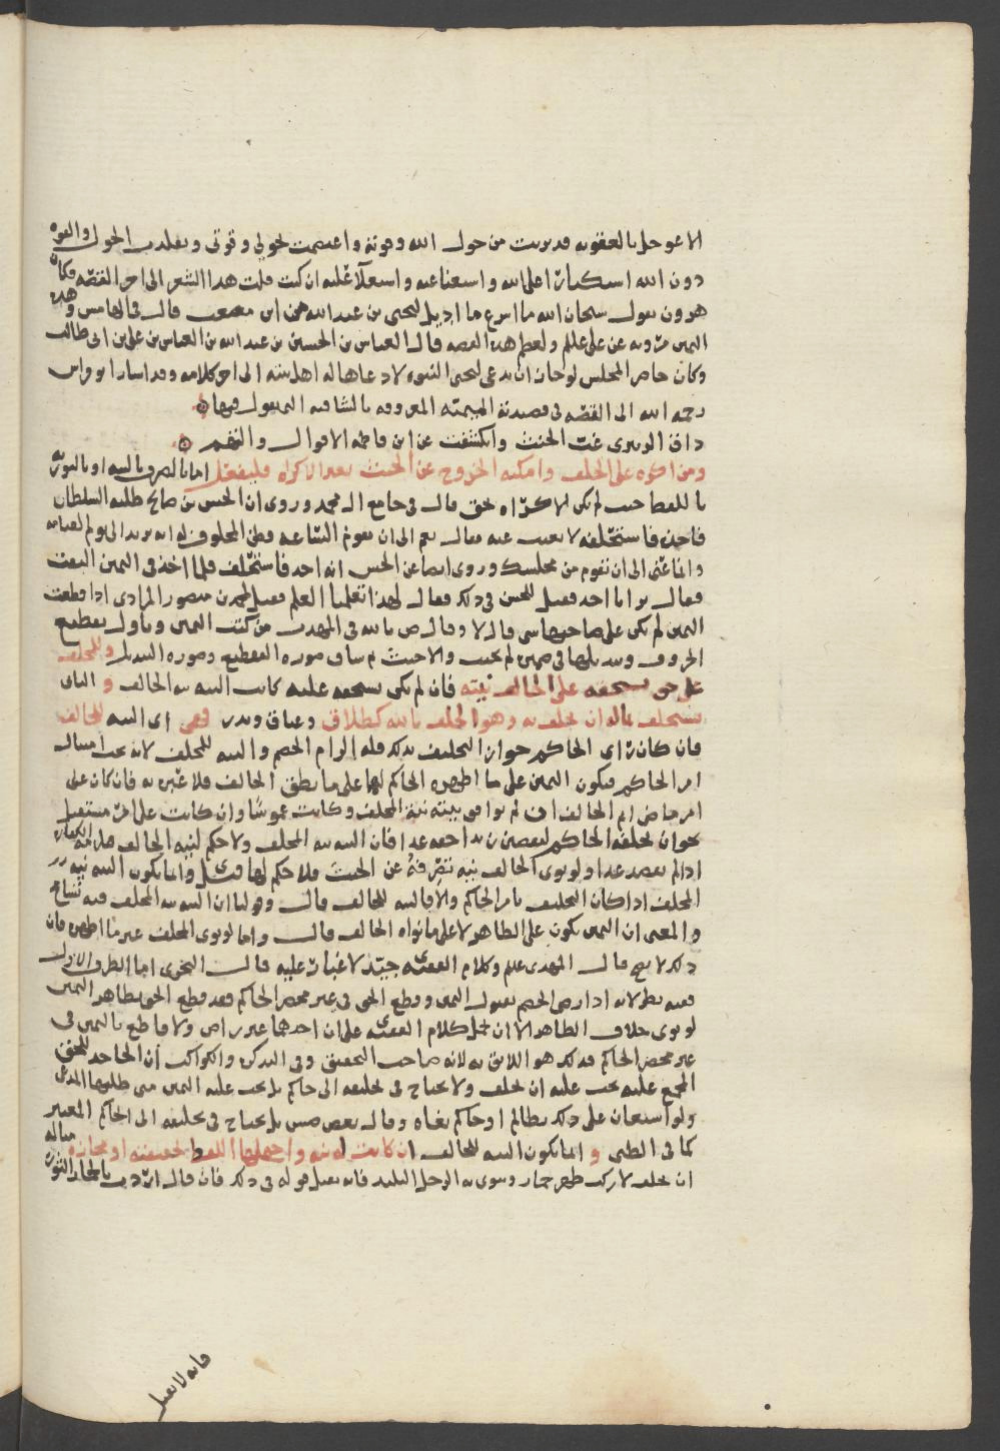 الا عوجل بالعقوبه قد برئت من حول الله وقوته واعتصمت بحولي وقوتي وتقلدت الحول والقوه
دون الله استكبارا على الله واستغناء عنه واستعلاء عليه ان كنت قلت هذا الشعر الى اخر القصه فكان
هرون يقول سبحان الله ما اسرع ما اديل ليحيى بن عبد الله من ابن مصعب قال في الهامس وهذه
اليمين مرويه عن علي علم ولعظم هذه القصه قال العباس بن الحسين بن عبد الله بن العباس بن علي بن ابي طالب
وكان حاضر المجلس لو جاز ان يدعى ليحيى النبوءه لادعاها له اهل بيته الى اخر كلامه وقد اشار ابو فراس
رحمه الله الى القصه في قصيدته الميميه المعروفه بالشافيه التي يقول فيها
ذاق الزبيري غب الحنث وانكشفت عن ابن فاطمه الاقوال والتهم
ومن اكره على الحلف وامكنه الخروج عن الحنث بغير الاكراه فليفعل اما بالصرف بالنيه او بالتوريه
باللفظ حيث لم يكن الاكراه بحق قال في جامع ال محمد وروى ان الحسن بن صالح طلبه السلطان
فاخذ فاستحلفه لا يغيب عنه فقال نعم الى ان تقوم الساعه فظن المحلوف له انه يريد الى يوم القيامه
وانما عنى الى ان تقوم من مجلسك وروى ايضا عن الحسن انه اخذ فاستحلف فلما اخذ في اليمين التفت
فقال يا احمد فقيل للحسن في ذلك فقال لهذا تعلمنا العلم فقيل لمحمد بن منصور المرادي اذا قطعت
اليمين لم يكن على صاحبها شي قال لا وقال ص بالله في المهذب من كتب اليمين وتاول بقطيع
الحروف وتبديلها في ضميره لم يحنث والا حنث ثم ساق صوره التقطيع وصوره التبديل وللمحلف
على حق يستحقه على الحالف نيته فان لم يكن يستحقه عليه كانت النيه نيه الحالف و الثاني
يستحلف بماله ان يحلف به وهو الحلف بالله كطلاق وعتاق ونذر فهي اي النيه للحالف
فان كان راي الحاكم جواز التحليف بذلك فله الزام الخصم والنيه للمحلف لانه يجب امتثال
امر الحاكم فيكون اليمين على ما اظهره الحاكم لهما على ما يطق الحالف فلا عبره به فان كان على
امر ماض اثم الحالف ان لم يوافق نيته نيه المحلف وكانت غموسا وان كانت على امر مستقبل
نحو ان يحلفه الحاكم ليقضين زيدا حقه غدا فان النيه نيه المحلف ولا حكم لنيه الحالف فتلزمه الكفاره
اذا لم يقضه غدا ولو نوى الحالف نيه تصرفه عن الحنث فلا حكم لها قيل وانما يكون النيه نيه
المحلف اذا كان التحليف بامر الحاكم والا فالنيه للحالف قال وقولنا ان النيه نيه المحلف فيه تسامح
والمعنى ان اليمين يكون على الظاهر لا على ما نواه الحالف قال واما لو نوى المحلف غير ما اظهره فان
ذلك لا يصح قال المهدي علم وكلام الفقيه جيد لا غبار عليه قال النجري اما الطرف الاول
ففيه نظر لانه اذا رضي الخصم بقبول اليمين وقطع الحق في غير محضر الحاكم فقد قطع الحق بظاهر اليمين
لو نوى خلاف الظاهر الا ان يحمل كلام الفقيه على ان احدهما غير راض ولا قاطع باليمين في
غير محضر الحاكم فذلك هو اللائق به لانه صاحب التحقيق وفي التذكره والكواكب ان الجاحد للحق
المجمع عليه يجب عليه ان يحلف ولا يحتاج في تحليفه الى حاكم بل يجب عليه اليمين متى طلبها المدعي
ولو استعان على ذلك بظالم او حاكم بغاه وقال بعض صش بل يحتاج في تحليفه الى الحاكم المعتبر
كما في الظبي و انما يكون النيه للحالف ان كانت له نيه واحتملها اللفظ بحقيقته او مجازه مثاله
ان يحلف لا ركب ظهر حمار ونوى به الرجل البليد فانه يقبل قوله في ذلك فان قال اردت بالحمار الثور
فانه لا يقبل